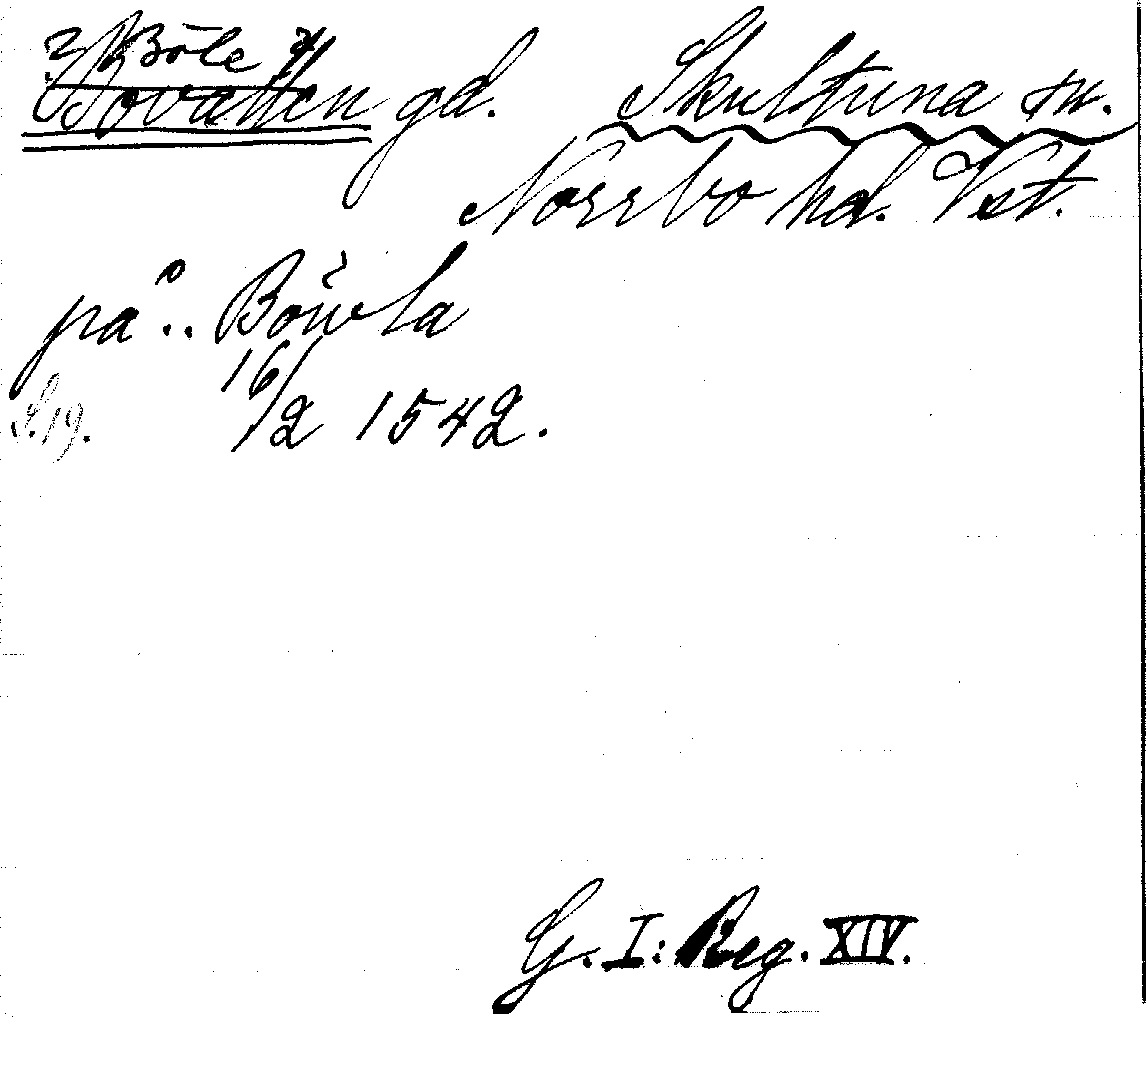 ? Böle ?/
Bovallen gd. Skultuna sn.
Norrbo hd. Vst.
på .. Böwla
16/2 1542.
S. 19.
G. I: Reg. XIV.